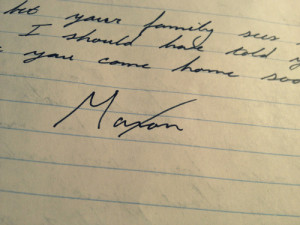 bet your family sees
I should have told y
you come home soo
Maxon